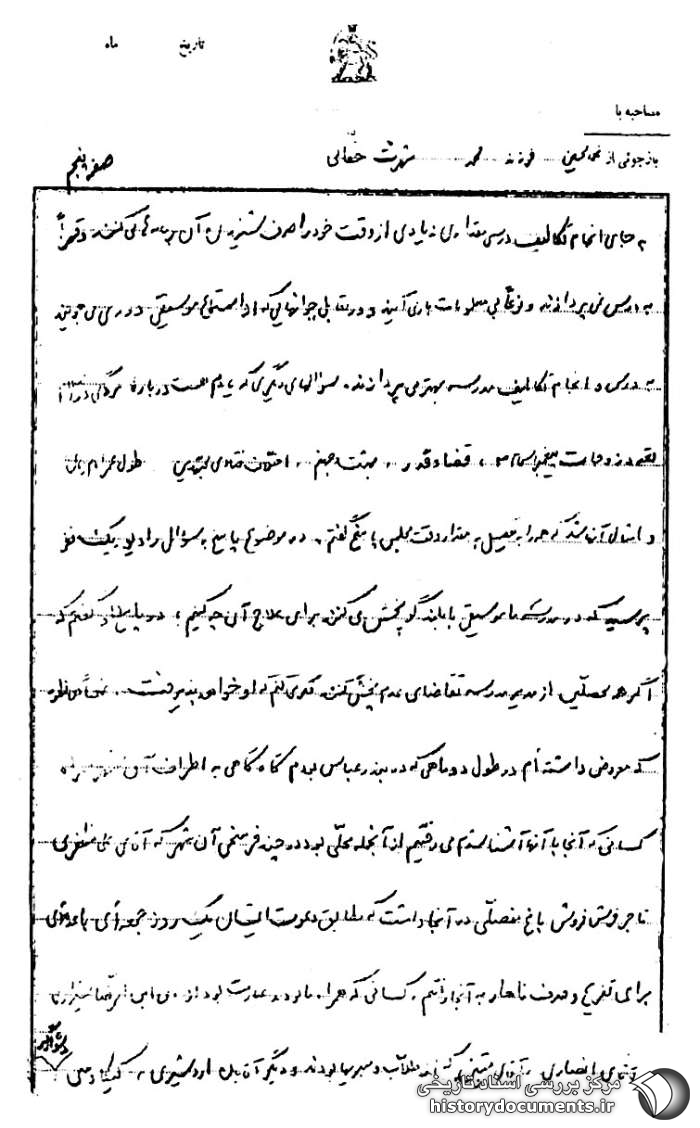 تاریخ ماه
مصاحبه با
بازجوئی از فرزند محمد شهرت حقانی
صفحه پنجم
به جای انجام تکالیف درسی مقداری زیادی از وقت خود را صرف شنیدن آن برنامه‌ها می‌کنند و قهراً
به درس نمی‌پردازند و نوعاً بی معلومات بار می‌آیند و در مقابل جوانهایی که از استماع موسیقی دوری می‌جویند
به درس و انجام تکالیف مدرسه بهتر می‌پردازند. سؤالهای دیگری که یادم هست درباره
تعدد زوجات پیغمبر اسلام، قضا و قدر، بهشت و جهنم، اختلاف فتاوی مجتهدین طول عمر امام زمان
و امثال آن شد که همه را به تفصیل به مقدار وقت مجلس پاسخ گفتم. در موضوع پاسخ به سؤال رادیو یک نفر
پرسید که در مدرسه ما موسیقی با بلندگو پخش می‌کنند برای علاج آن چه کنیم؟ در پاسخ او گفتم که
اگر همه محصلین از مدیر مدرسه تقاضای عدم پخش کنند فکر می‌کنم که او خواهد پذیرفت. ضمناً
که معروض داشته‌ام در طول دو ماهی که در بندرعباس بودم گاه گاهی به اطراف آن شهر همراه
کسانی که آنجا با آنها آشنا شدم می‌رفتیم از آنجمله محلی بود در چند فرسخی آن شهر که آقای علی مظفری
تاجر فرش فروش باغ مفصلی در آنجا داشت که مطابق دعوت ایشان یک روز جمعه‌ای
برای تفریح و صرف ناهار به آنجا رفتیم. کسانی که همراه ما بودند عبارت بود از
آقای انصاری، آقای طلاب و دیگر آقایان اردشیری،
مرکز بررسی اسناد تاریخی
historydocuments.ir